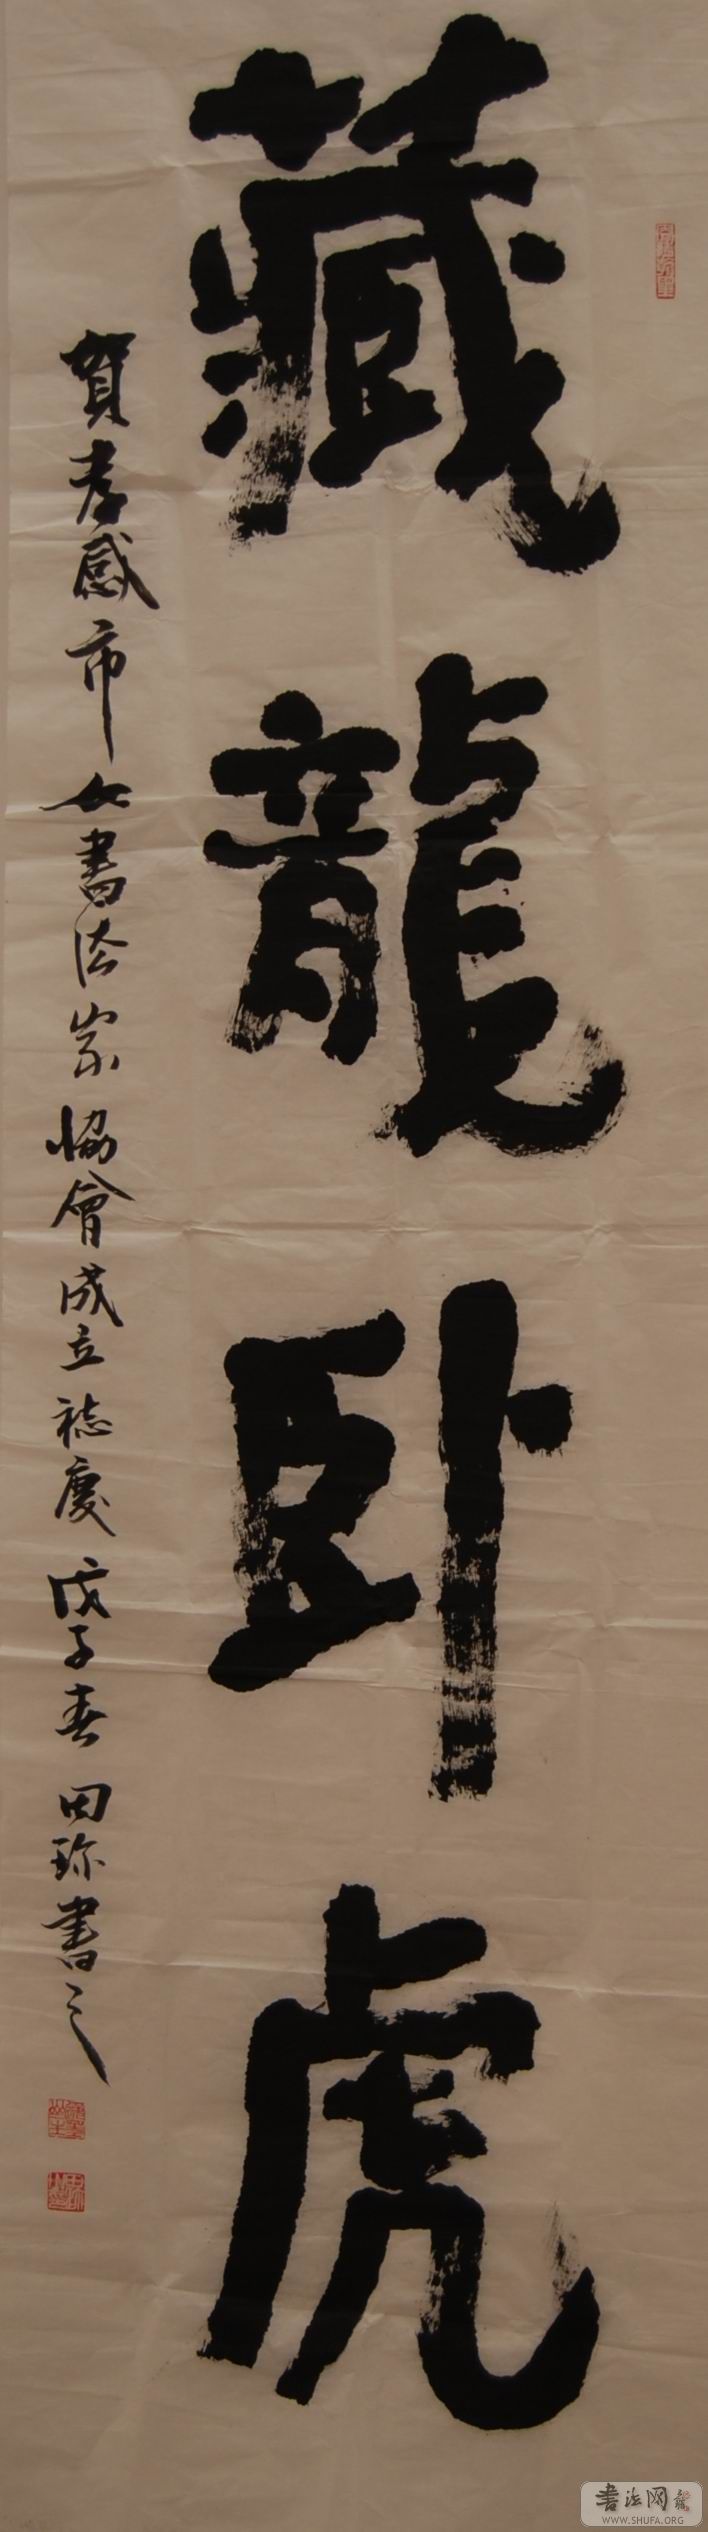 藏龍卧虎
賀孝感市女書法家協會成立誌慶 戊子春 田珎書之
書法网
WWW.SHUFA.ORG